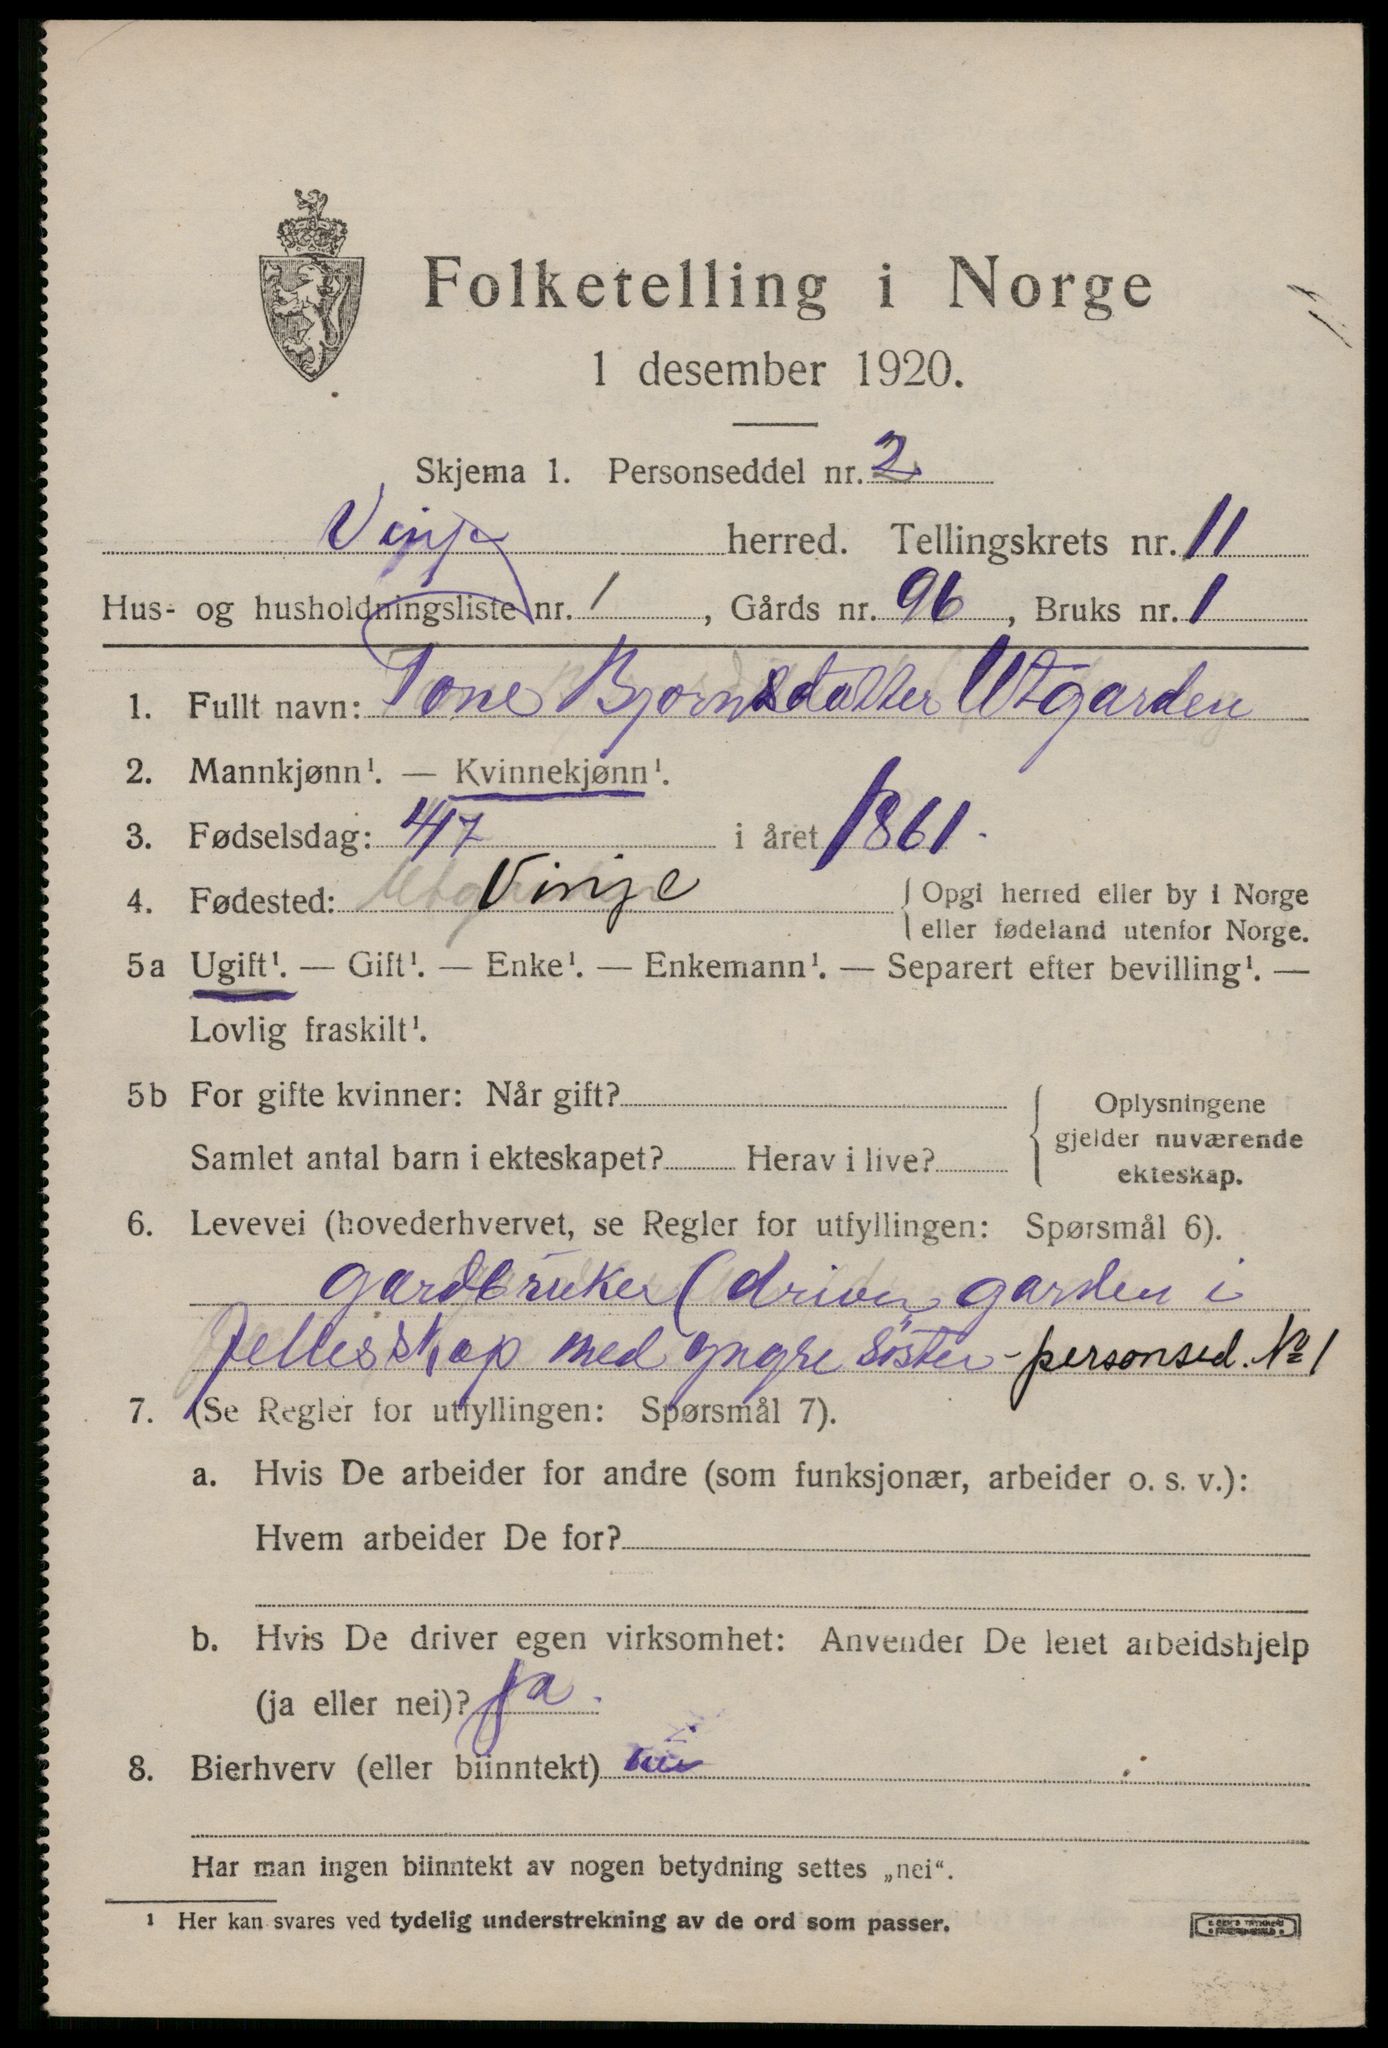 Folketelling i Norge
1 desember 1920.
Skjema 1. Personseddel nr. 2
Vinje herred. Tellingskrets nr. 11
Hus- og husholdningsliste nr. 1, Gårds nr. 96, Bruks nr. 1
1. Fullt navn: Tone Bjørnsdatter Utgarden
2. Mannkjønn¹. — Kvinnekjønn¹.
3. Fødselsdag: 4/7 i året 1861.
4. Fødested: Vinje { Opgi herred eller by i Norge
eller fødeland utenfor Norge.
5a Ugift¹. — Gift¹. — Enke¹. — Enkemann¹. — Separert efter bevilling¹. —
Lovlig fraskilt¹.
5b For gifte kvinner: Når gift?
Samlet antal barn i ekteskapet? Herav i live?
{ Oplysningene
gjelder nuværende
ekteskap.
6. Levevei (hovederhvervet, se Regler for utfyllingen: Spørsmål 6).
gardbruker (driver garden i
fellesskap med yngre søster - personsed. No 1
7. (Se Regler for utfyllingen: Spørsmål 7).
a. Hvis De arbeider for andre (som funksjonær, arbeider o. s. v.):
Hvem arbeider De for?
b. Hvis De driver egen virksomhet: Anvender De leiet arbeidshjelp
(ja eller nei)? ja.
8. Bierhverv (eller biinntekt) nei
Har man ingen biinntekt av nogen betydning settes „nei“.
¹ Her kan svares ved tydelig understrekning av de ord som passer.